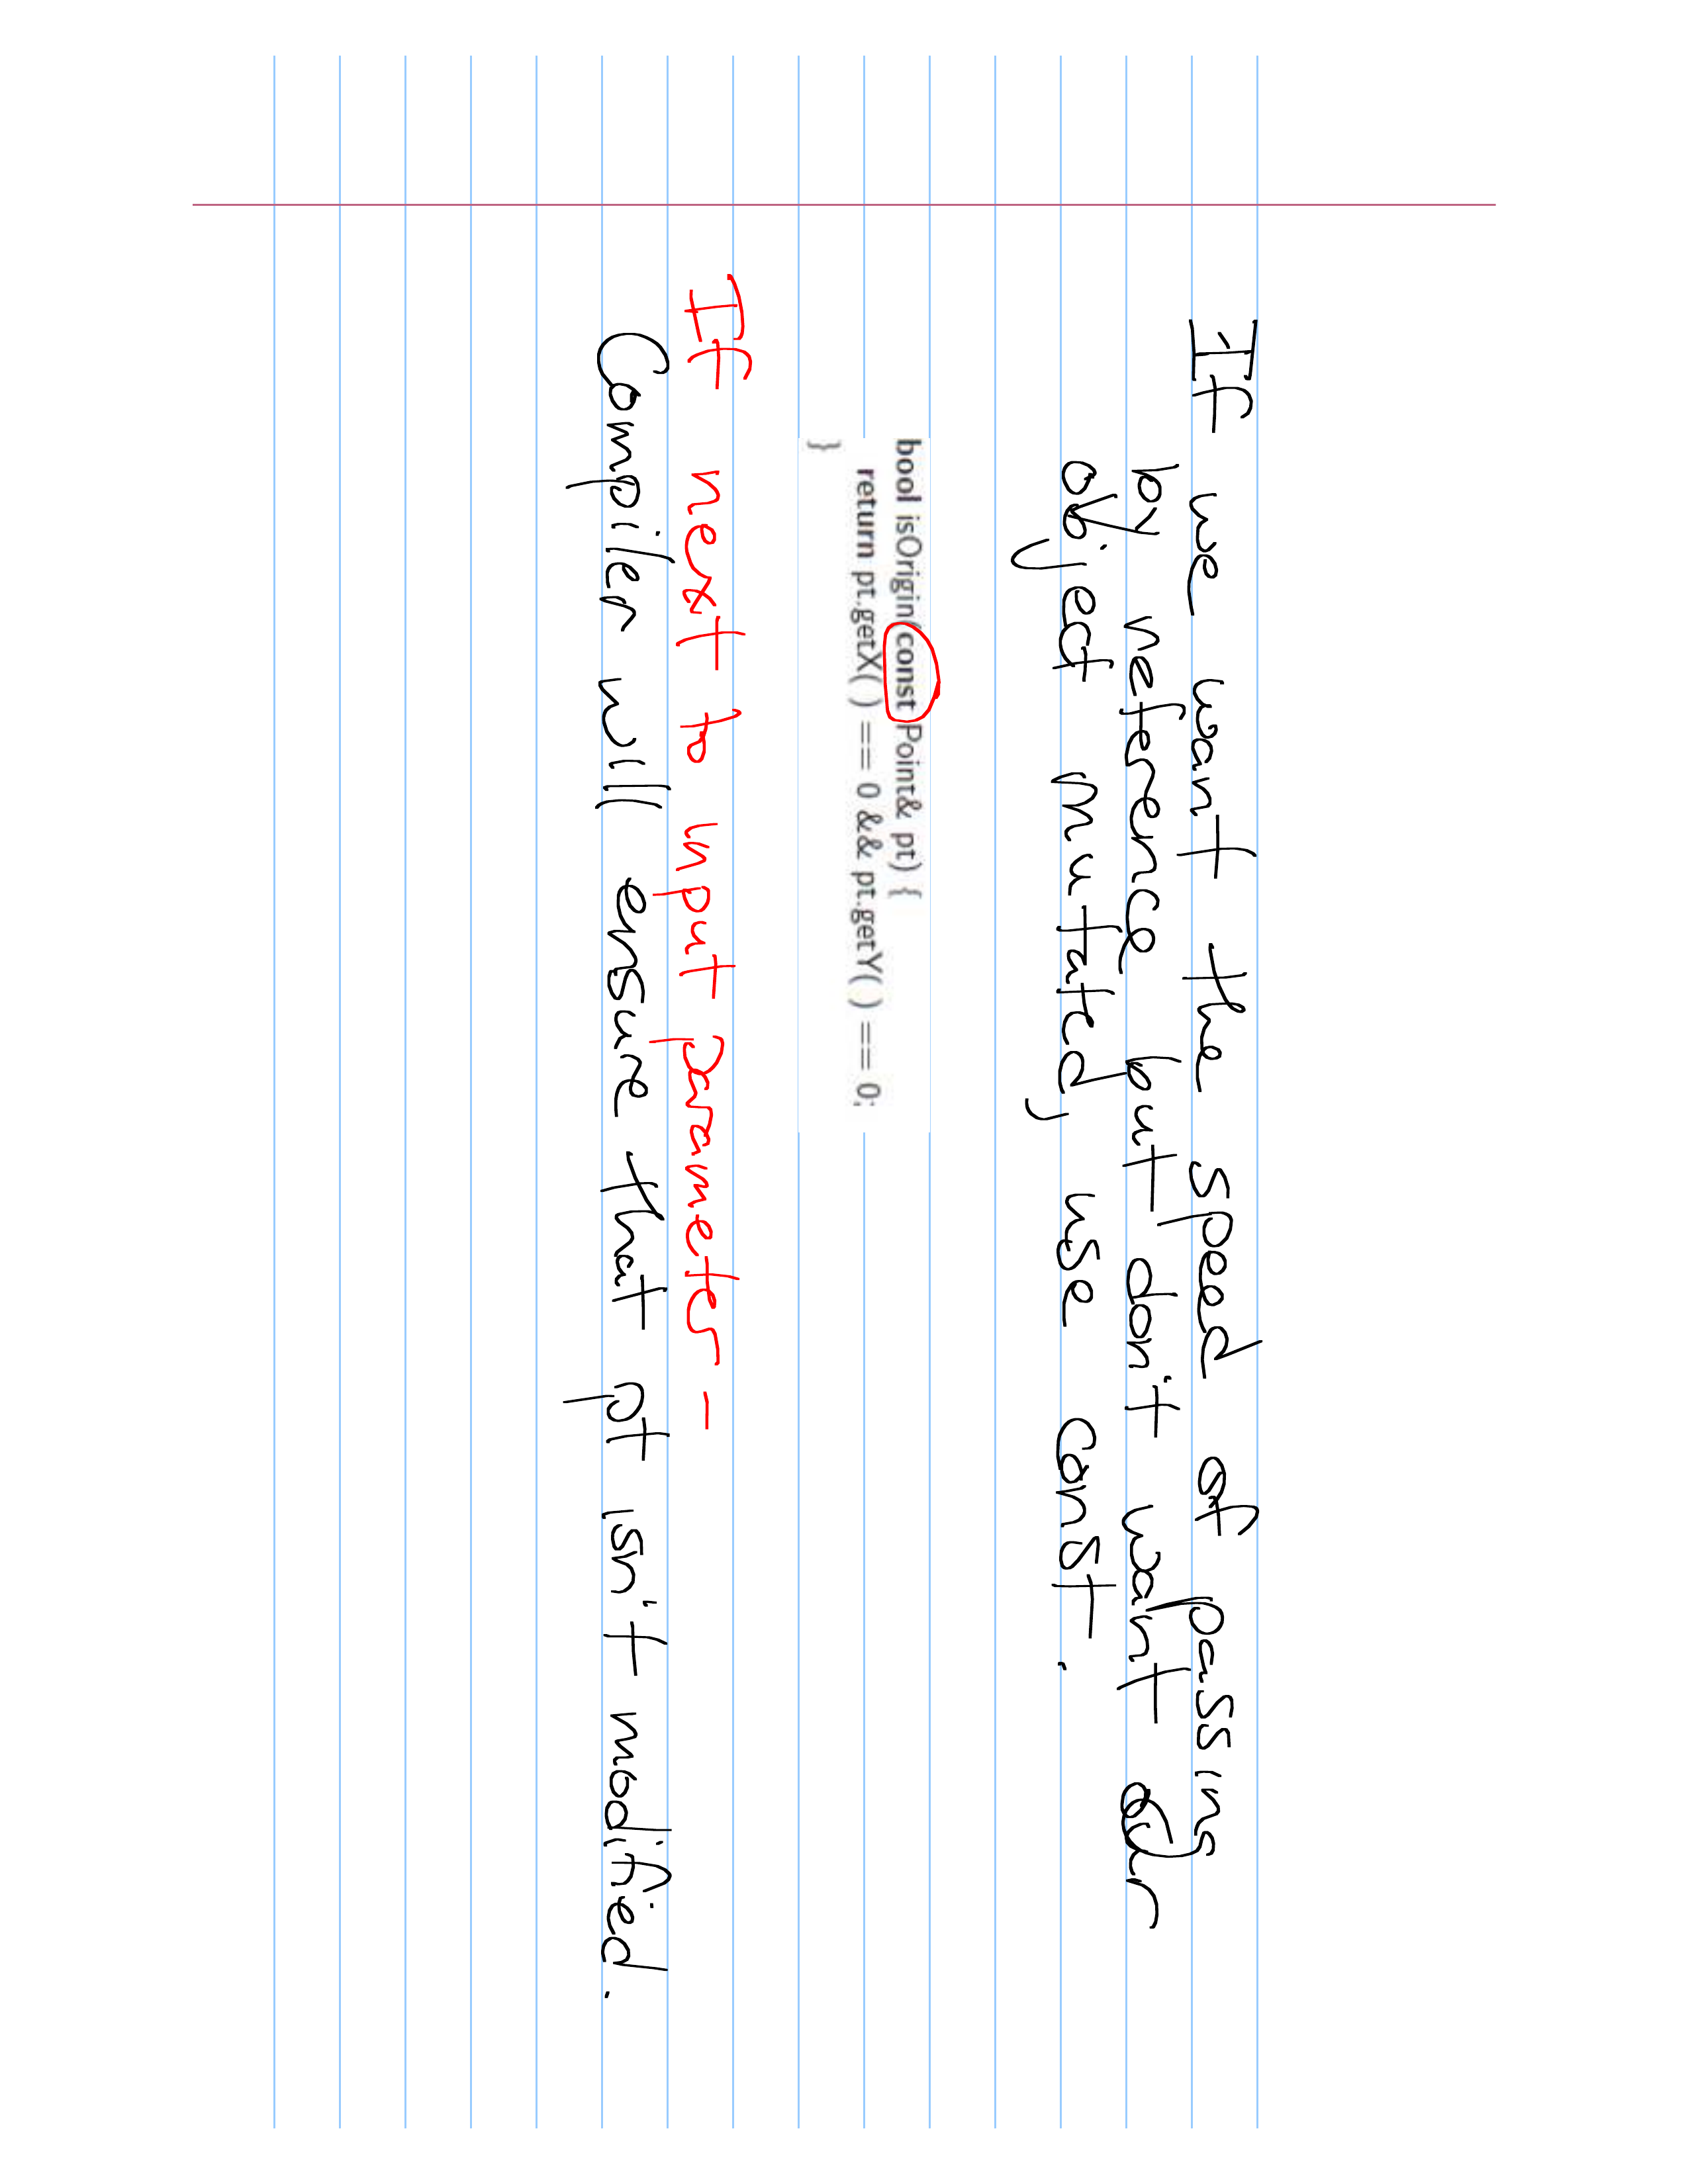 If we want the speed of passing
by reference but don't want our
object mutated, use const.
bool isOrigin(const Point& pt) {
return pt.getX( ) == 0 && pt.getY( ) == 0;
}
If next to input parameter -
Compiler will ensure that pt isn't modified.